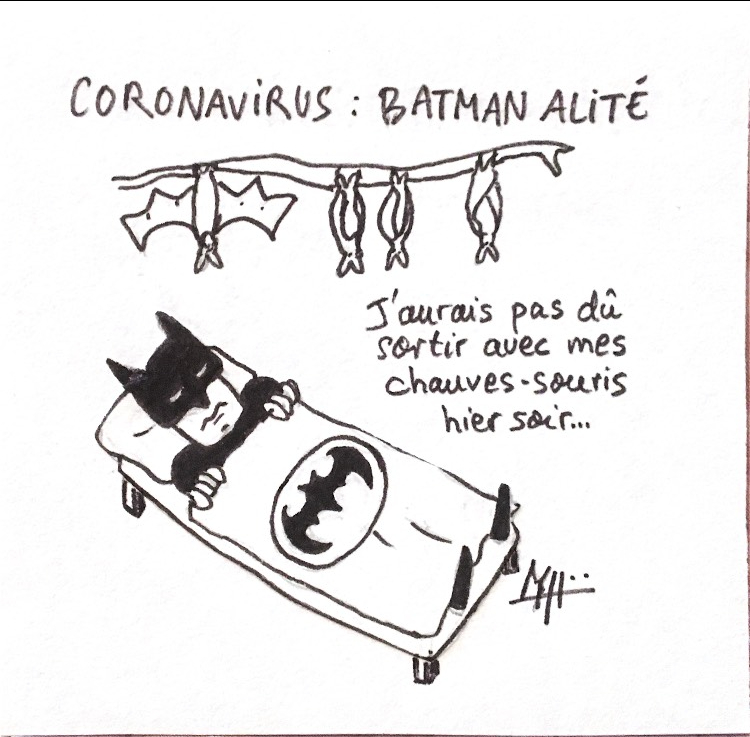 CORONAViRUS : BATMAN ALiTÉ
J'aurais pas dû
sortir avec mes
chauves-souris
hier soir...